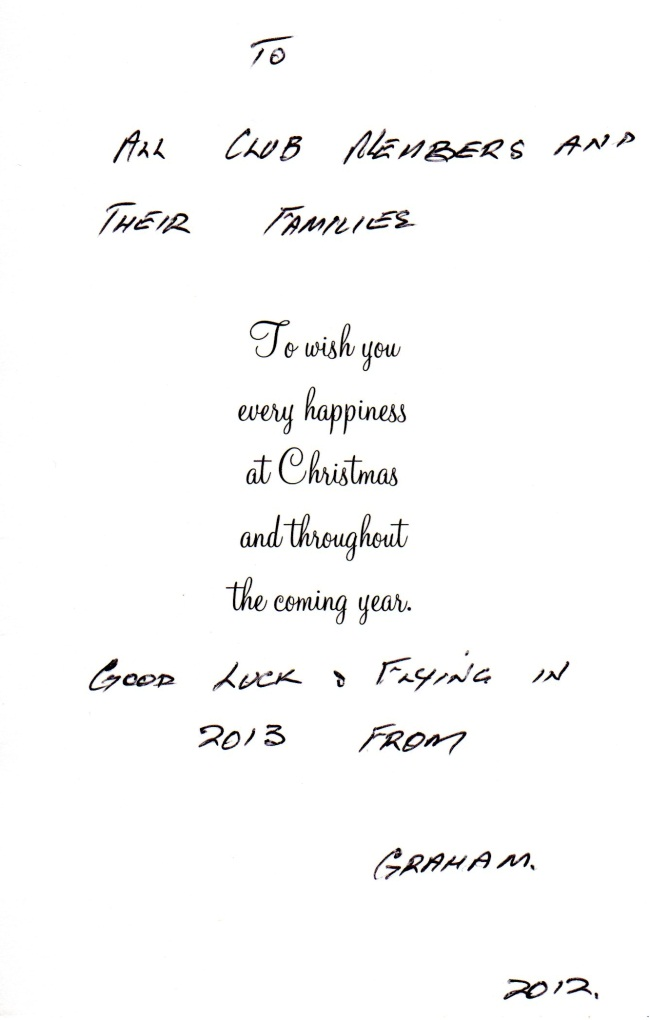 TO
ALL CLUB MEMBERS AND
THEIR FAMILIES
To wish you
every happiness
at Christmas
and throughout
the coming year.
GOOD LUCK & FLYING IN
2013 FROM
GRAHAM.
2012.